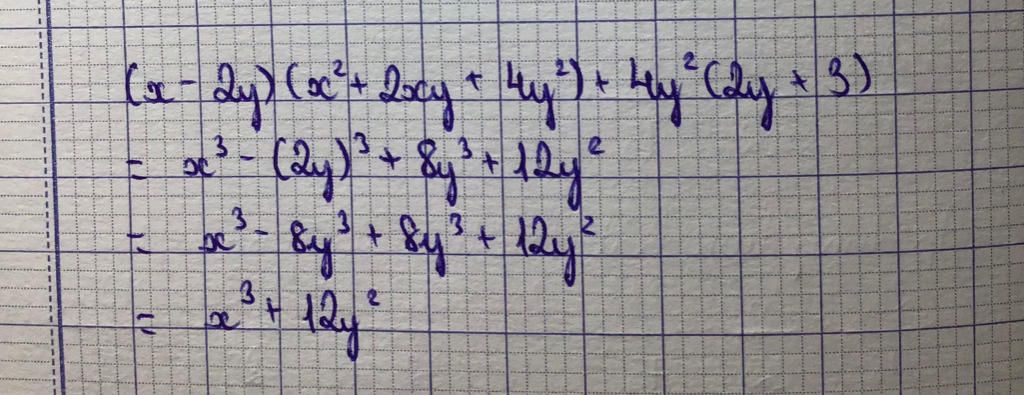 (x - 2y)(x² + 2xy + 4y²) + 4y²(2y + 3)
= x³ - (2y)³ + 8y³ + 12y²
= x³ - 8y³ + 8y³ + 12y²
= x³ + 12y²